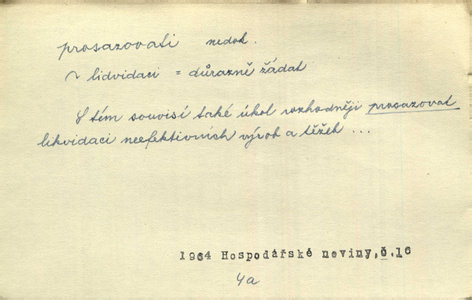 prosazovati nedok.
~ lidvidaci = důrazně žádat
S tém souvisí také úkol rozhodněji prosazovat
likvidaci neefektivních výrob a těžeb ...
1964 Hospodářské neviny,č.16
4a